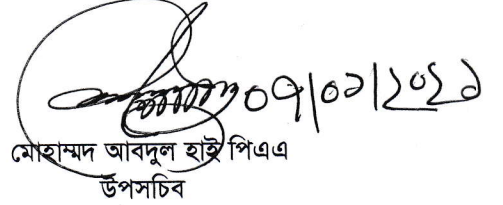 ০৭|০১|২০২১
মোহাম্মদ আবদুল হাই পিএএ
উপসচিব